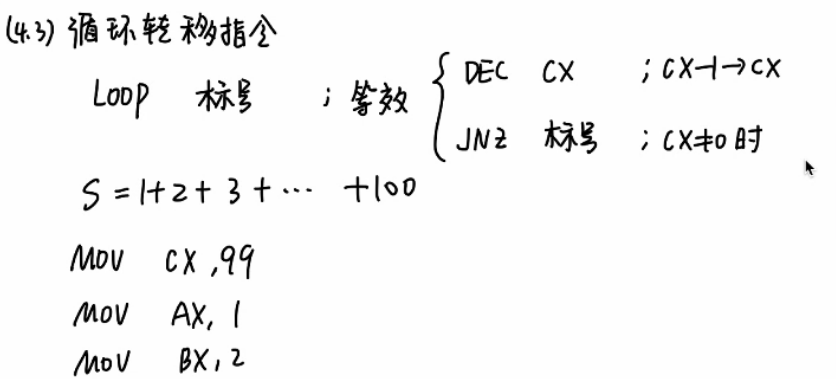 (4.3) 循环转移指令
LOOP 标号 ; 等效 { DEC CX ; CX-1→CX
JNZ 标号 ; CX≠0时
S = 1+2+3+⋯ +100
MOV CX,99
MOV AX, 1
MOV BX, 2